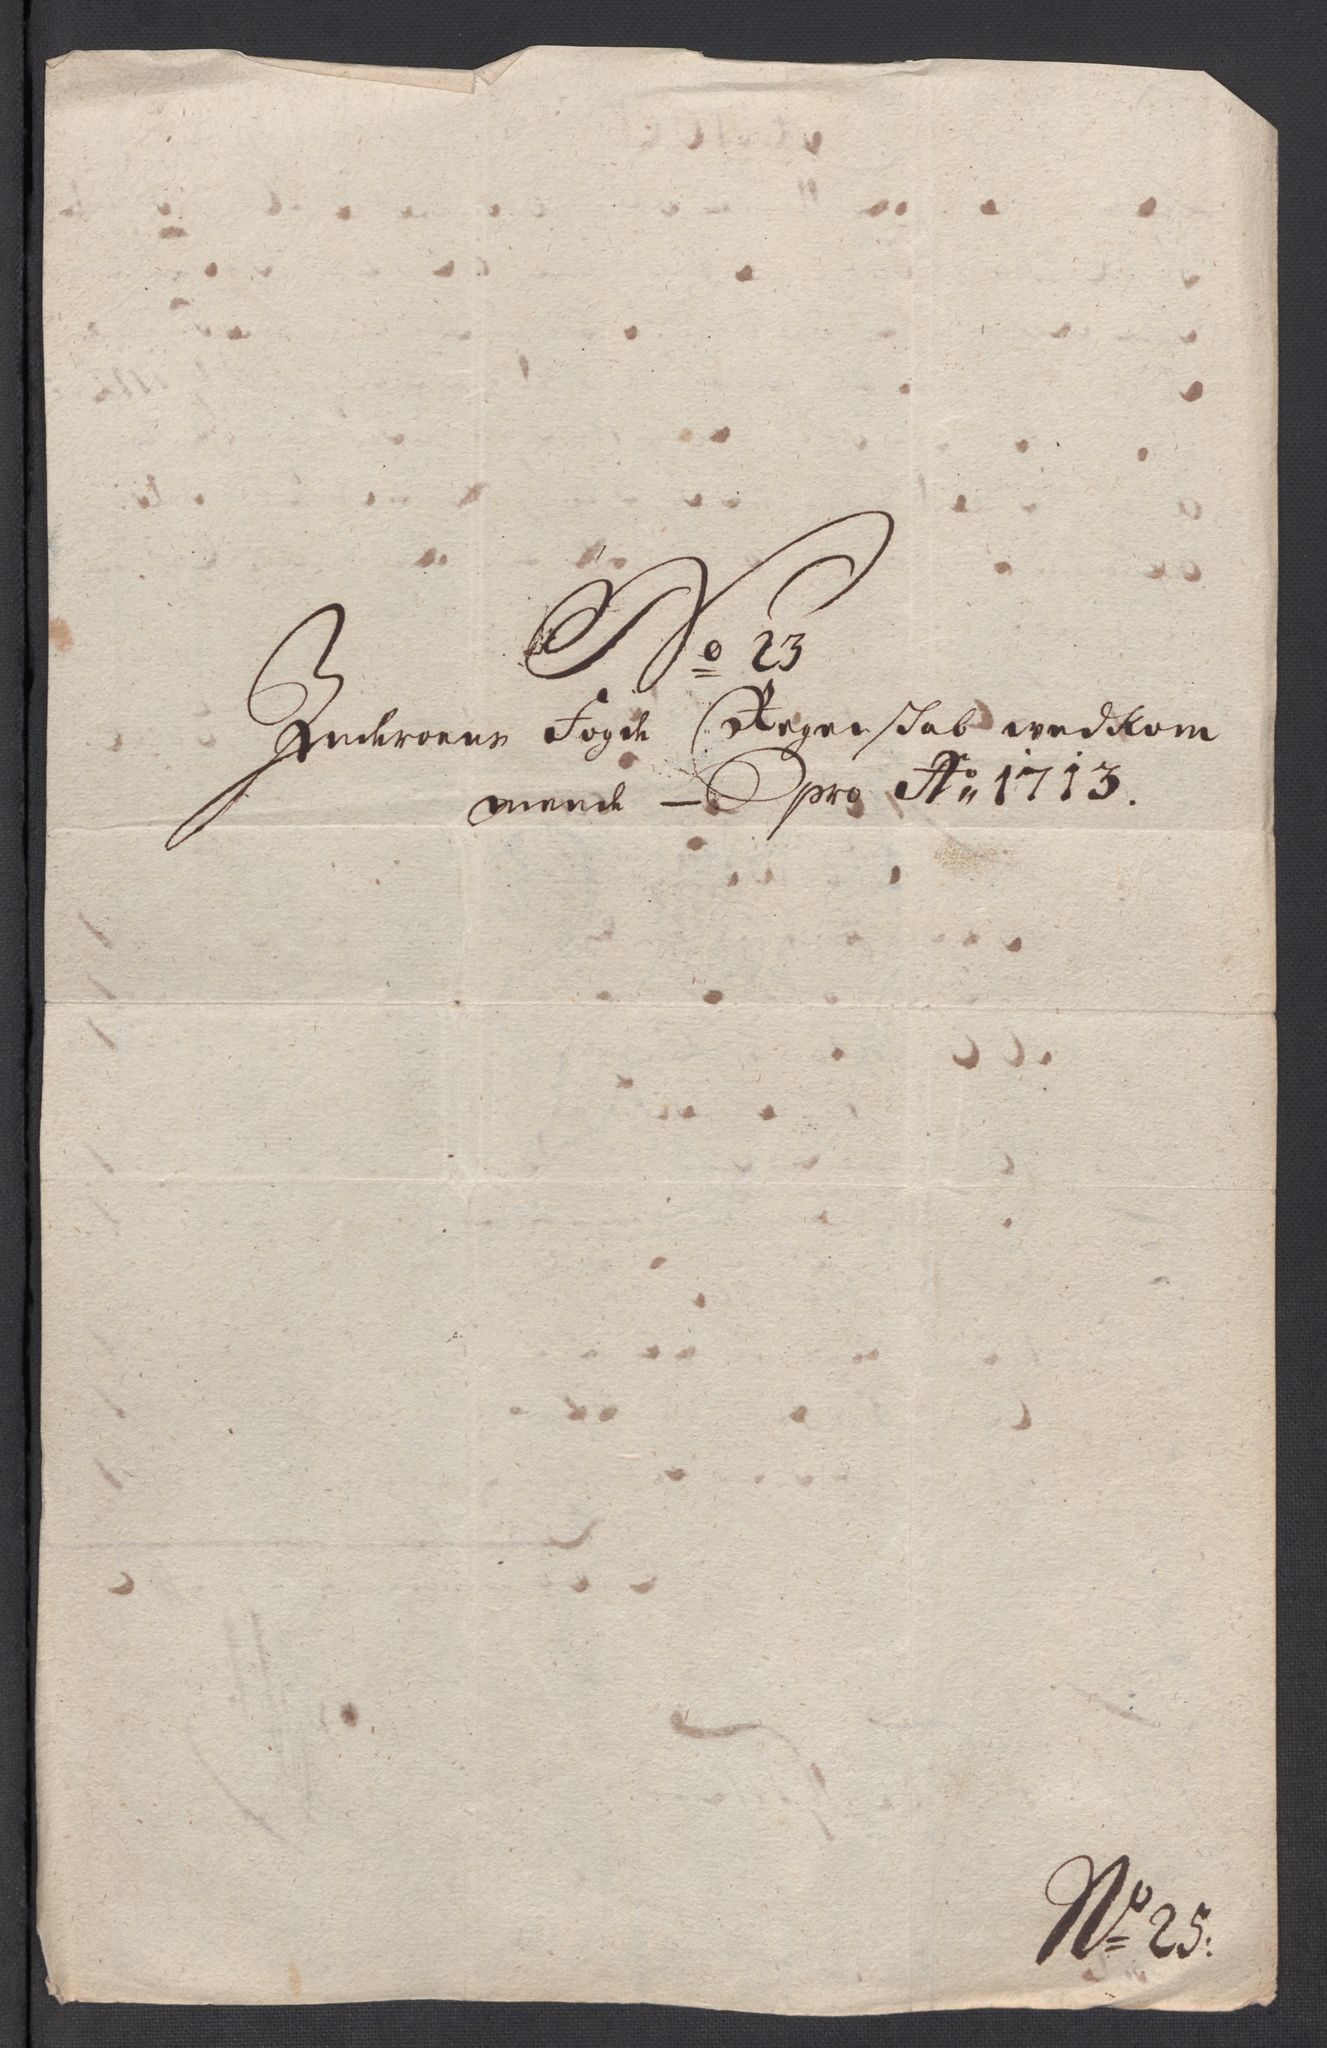 No 23
Inderoens Fogde Regenskab wedkom
mende — pro Ao 1713.
No 25: